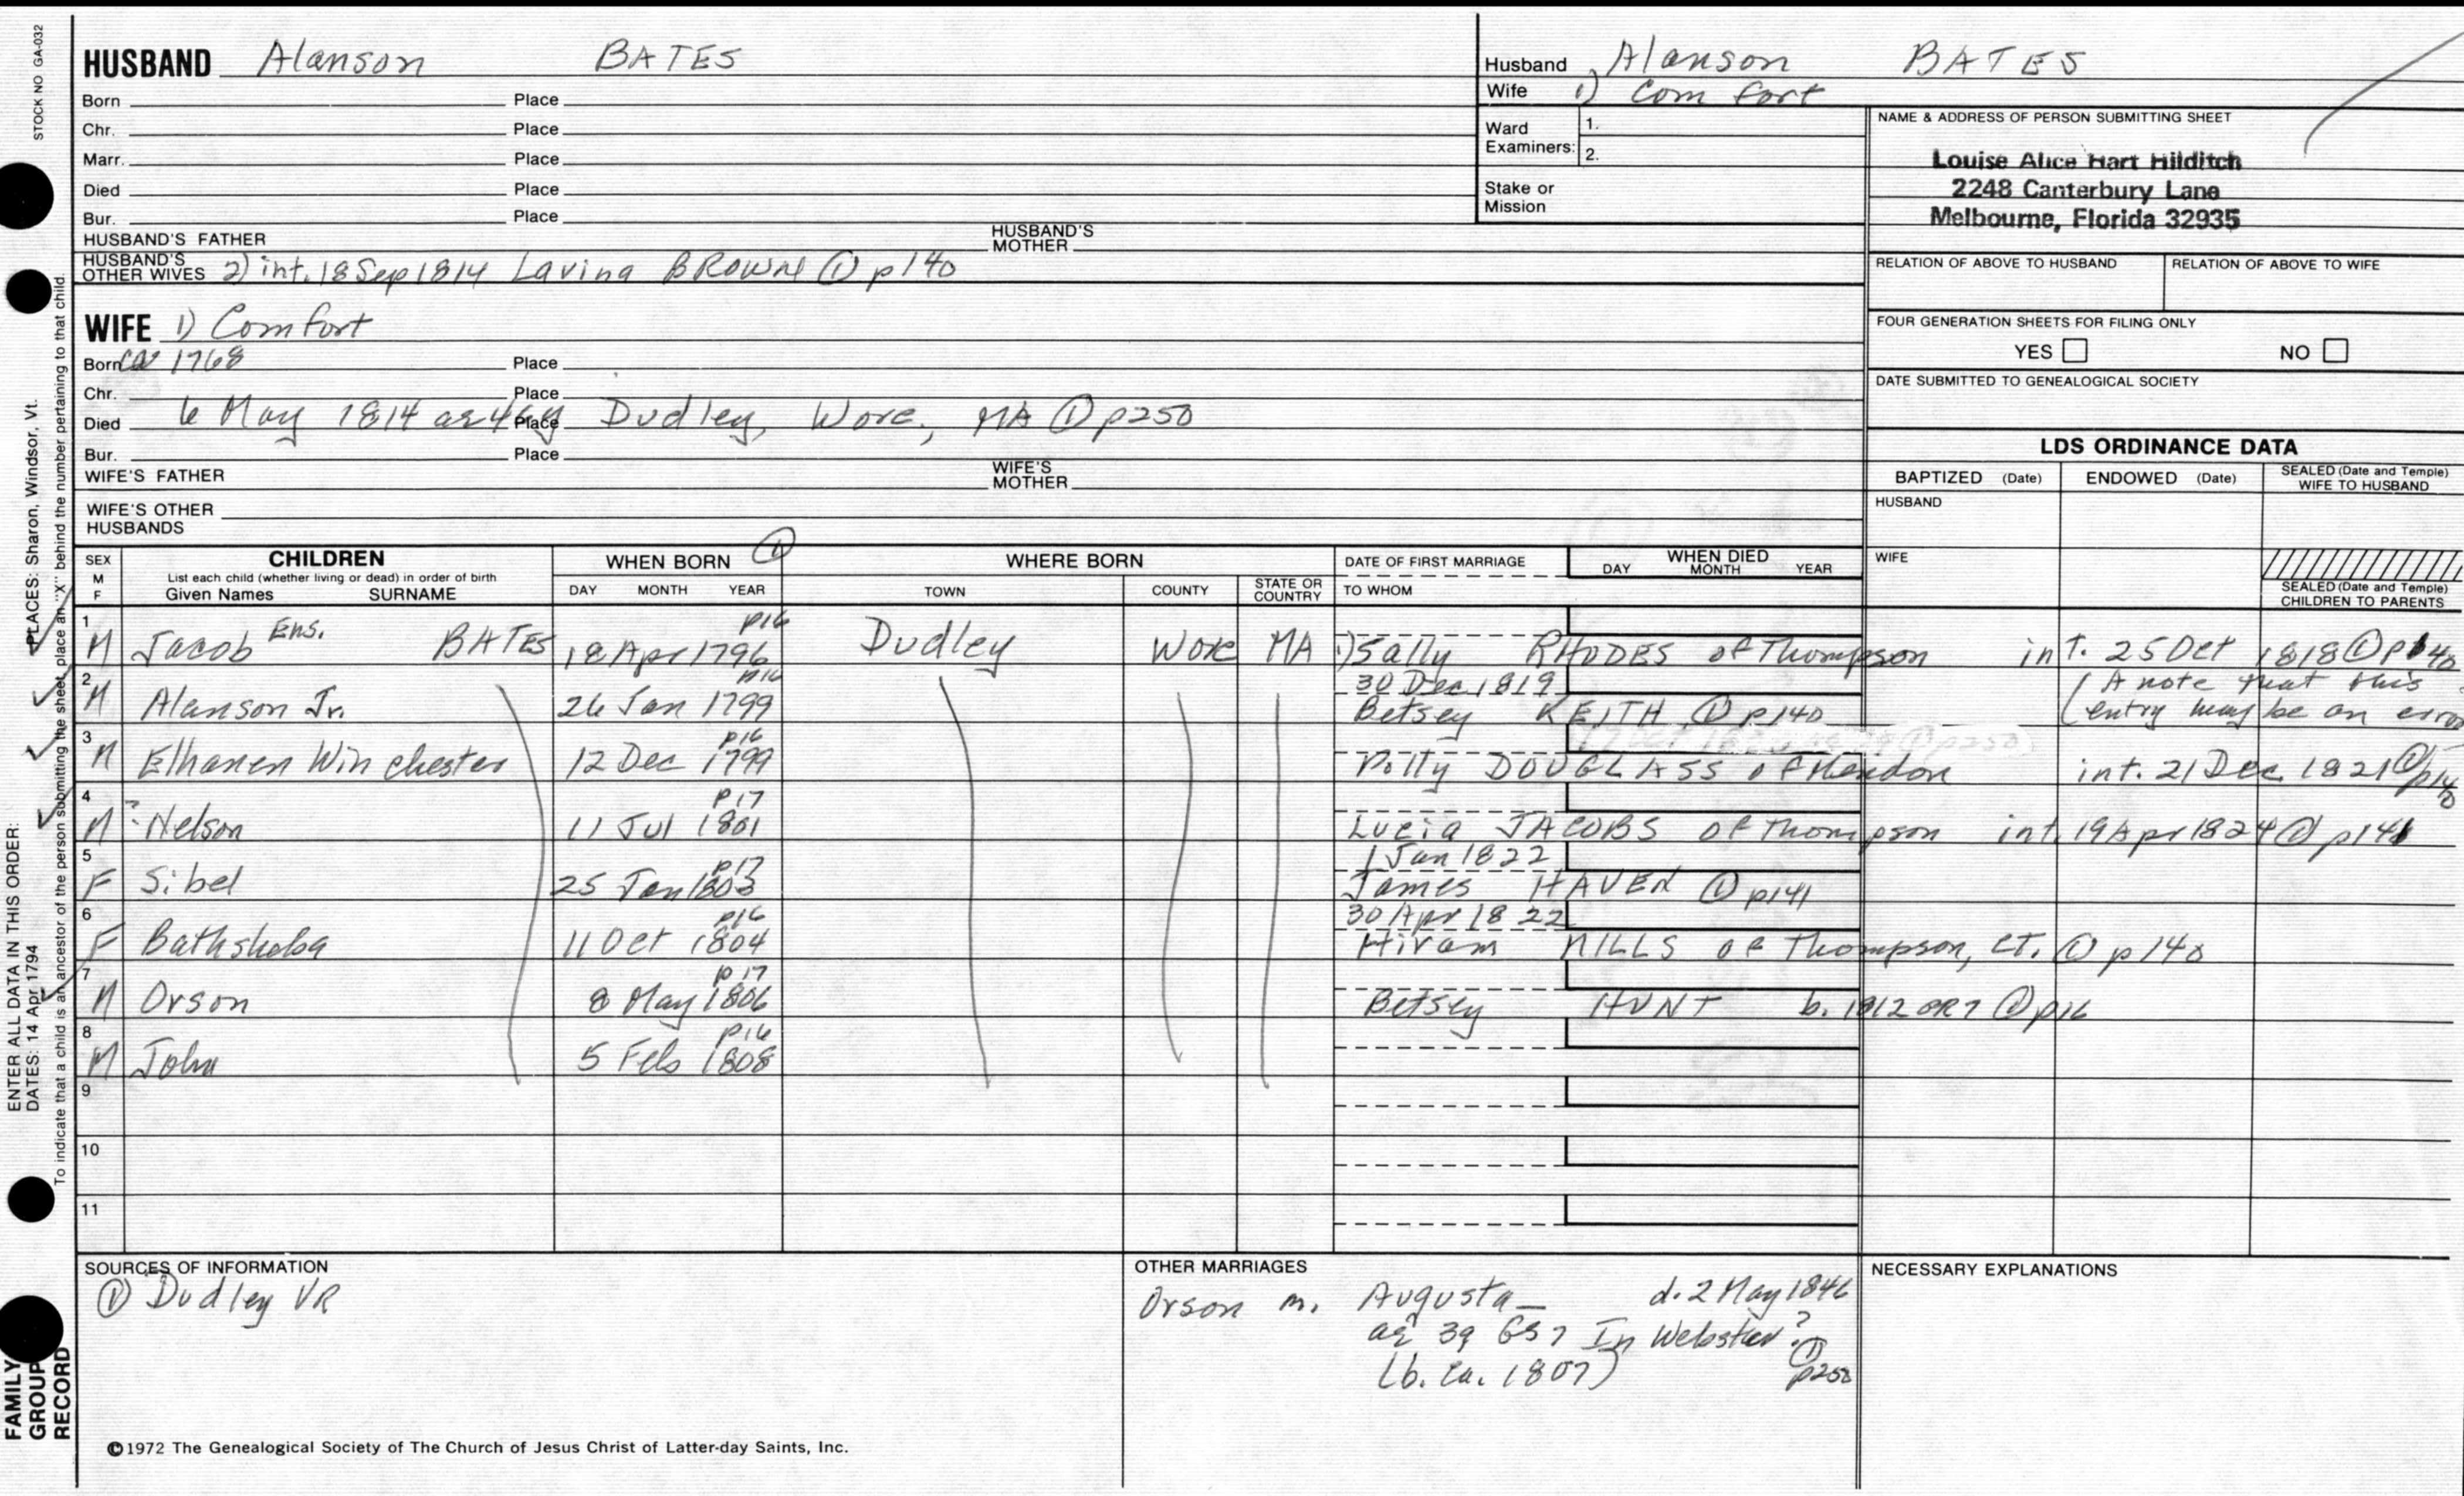 STOCK NO GA-032
HUSBAND Alanson BATES
Born Place
Chr. Place
Marr. Place
Died Place
Bur. Place
HUSBAND'S FATHER HUSBAND'S MOTHER
HUSBAND'S OTHER WIVES 2) int. 18 Sep 1814 Lavina BROWN ① p140
WIFE 1) Comfort
Born ca 1768 Place
Chr. Place
Died 6 May 1814 ae 46y Place Dudley, Worc., MA ① p250
Bur. Place
WIFE'S FATHER WIFE'S MOTHER
WIFE'S OTHER HUSBANDS
Husband Alanson BATES
Wife 1) Comfort
Ward Examiners: 1.
2.
Stake or Mission
NAME & ADDRESS OF PERSON SUBMITTING SHEET
Louise Alice Hart Hilditch
2248 Canterbury Lane
Melbourne, Florida 32935
RELATION OF ABOVE TO HUSBAND RELATION OF ABOVE TO WIFE
FOUR GENERATION SHEETS FOR FILING ONLY
YES NO
DATE SUBMITTED TO GENEALOGICAL SOCIETY
LDS ORDINANCE DATA
BAPTIZED (Date) ENDOWED (Date) SEALED (Date and Temple) WIFE TO HUSBAND
HUSBAND
WIFE
SEALED (Date and Temple) CHILDREN TO PARENTS
SEX M F CHILDREN
List each child (whether living or dead) in order of birth
Given Names SURNAME
WHEN BORN ①
DAY MONTH YEAR
WHERE BORN
TOWN COUNTY STATE OR COUNTRY
DATE OF FIRST MARRIAGE
TO WHOM
WHEN DIED
DAY MONTH YEAR
1 p16
M Jacob Ens. BATES 18 Apr 1796 Dudley Worc MA 1) Sally RHODES of Thompson int. 25 Oct 1818 ① p140
2 p16 30 Dec 1819 (A note that this
M Alanson Jr. 26 Jan 1799 Betsey KEITH ① p140 (entry may be an error
3 p16
M Elhanen Winchester 12 Dec 1799 Polly DOUGLASS of Mendon int. 21 Dec 1821 ① p140
4 p17
M ? Nelson 11 Jul 1801 Lucia JACOBS of Thompson int. 19 Apr 1824 ① p141
5 p17 1 Jan 1822
F Sibel 25 Jan 1803 James HAVEN ① p141
6 p16 30 Apr 1822
F Bathsheba 11 Oct 1804 Hiram MILLS of Thompson, CT. ① p140
7 p17
M Orson 8 May 1806 Betsey HUNT b. 1812 GR7 ① p16
8 p16
M John 5 Feb 1808
9
10
11
SOURCES OF INFORMATION
① Dudley VR
OTHER MARRIAGES
Orson m. Augusta — d. 2 May 1846
ae 39 GS7 In Webster?
(b. ca. 1807) ① p250
NECESSARY EXPLANATIONS
©1972 The Genealogical Society of The Church of Jesus Christ of Latter-day Saints, Inc.
FAMILY GROUP RECORD
ENTER ALL DATA IN THIS ORDER:
DATES: 14 Apr 1794 PLACES: Sharon, Windsor, Vt.
To indicate that a child is an ancestor of the person submitting the sheet, place an "X" behind the number pertaining to that child.